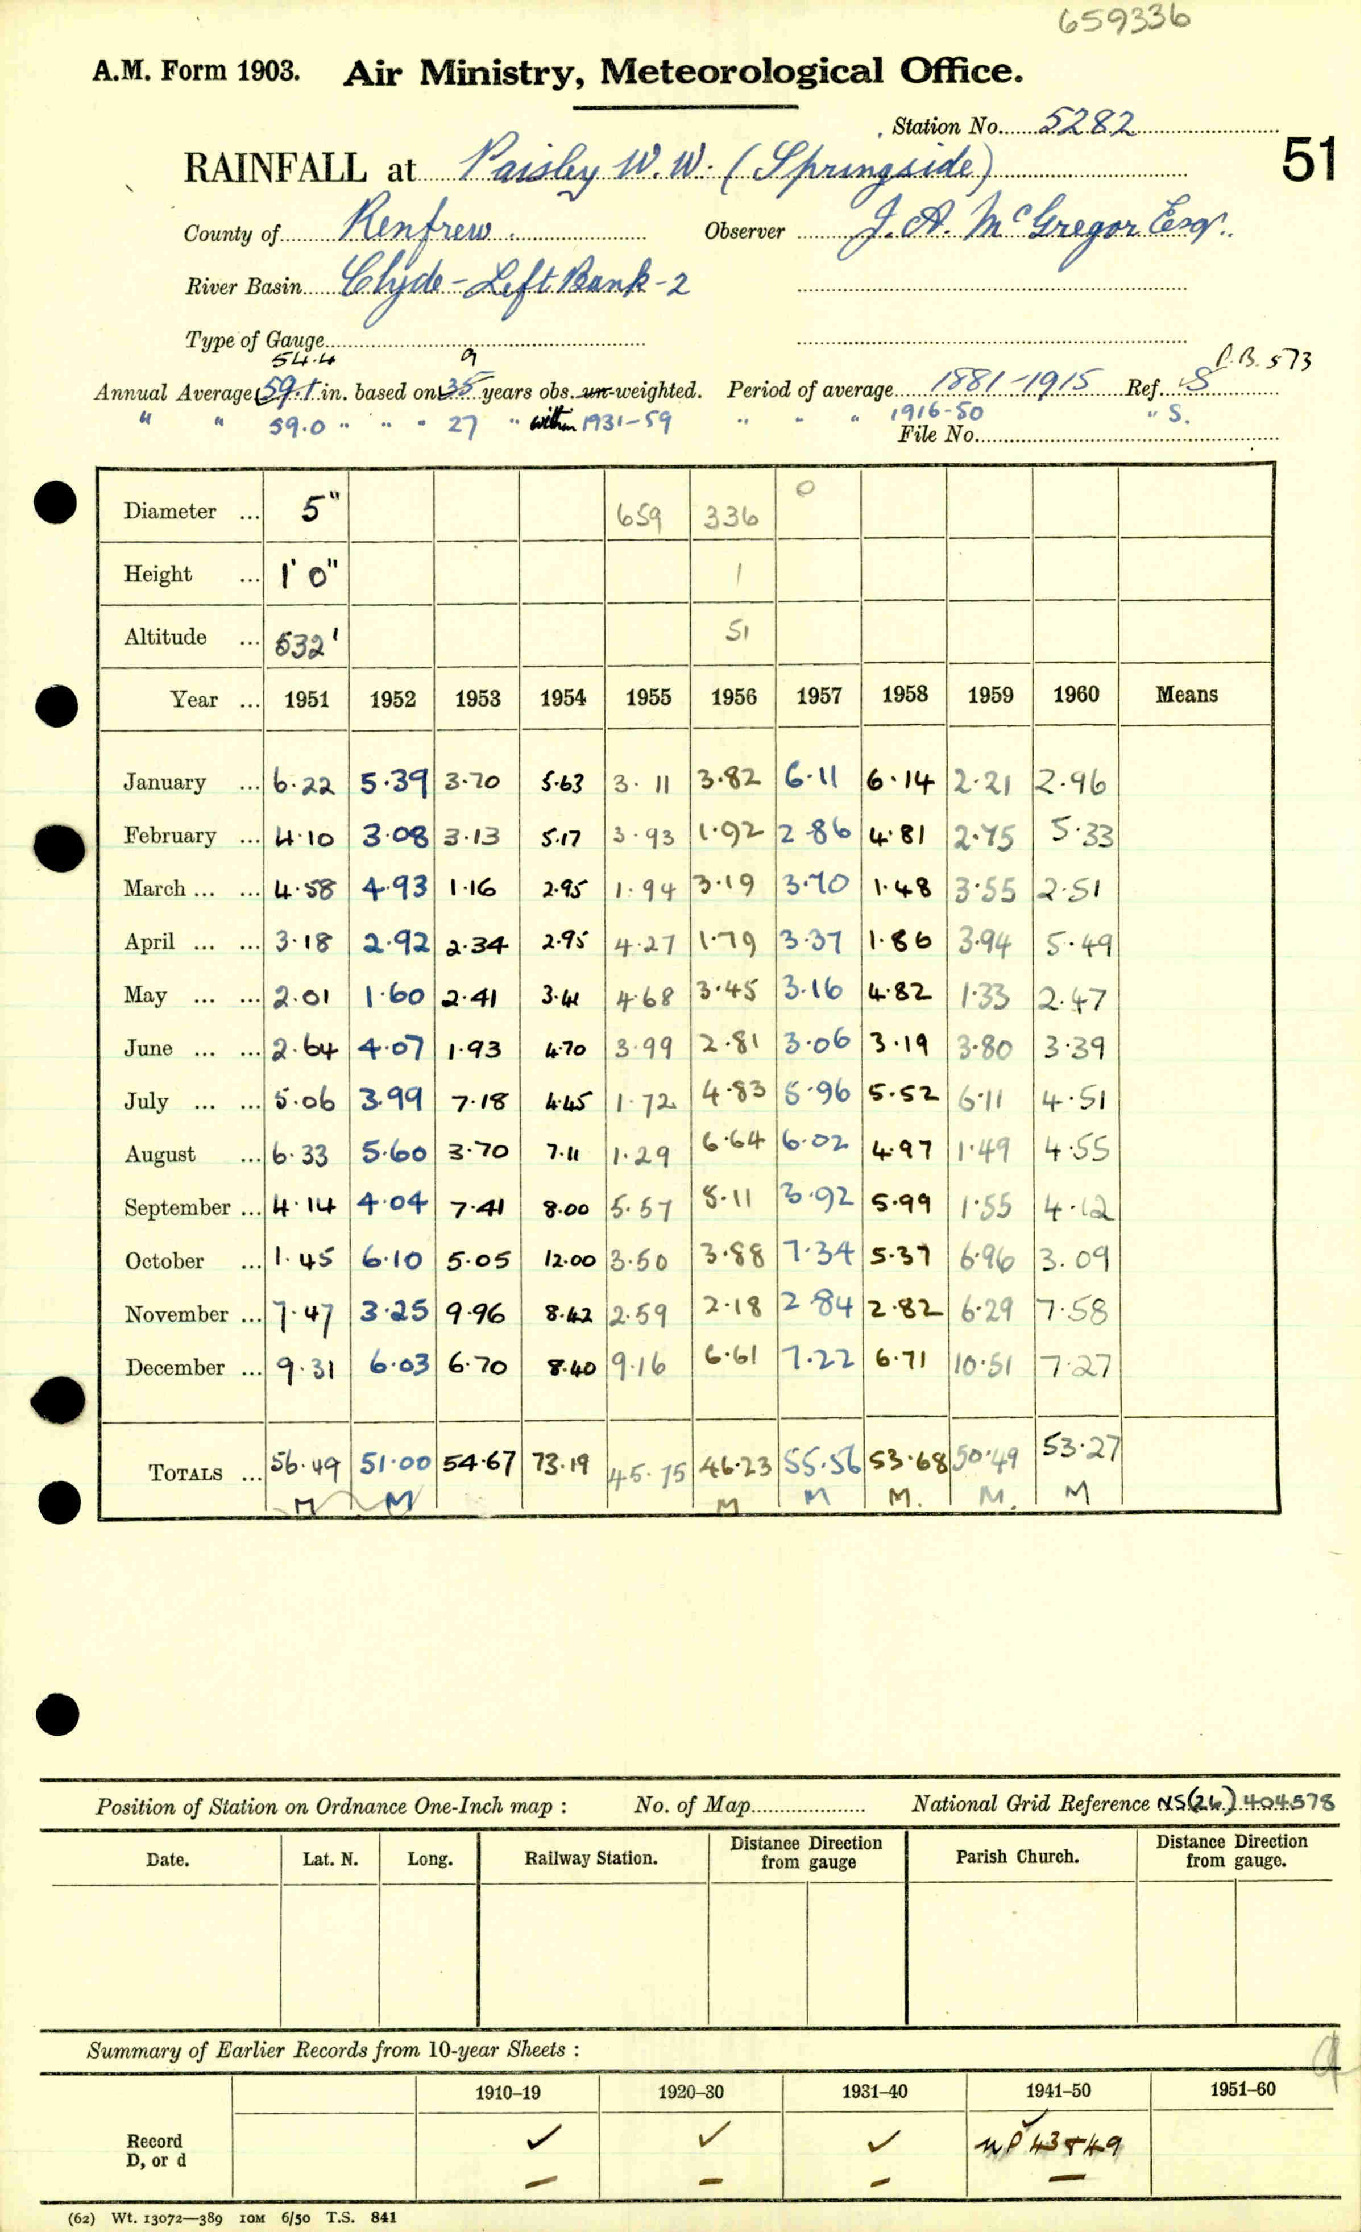 659336
A.M. Form 1903. Air Ministry, Meteorological Office.
Station No. 5282
RAINFALL at Paisley W.W. (Springside) 51
County of Renfrew. Observer J. A. McGregor Esqr.
River Basin Clyde - Left Bank - 2
Type of Gauge
54.4 9 P.B. 573
Annual Average 59.1 in. based on 35 years obs. un-weighted. Period of average 1881-1915 Ref. S
" " 59.0 " " " 27 " within 1931-59 " " " 1916-50 " S.
File No.
Diameter ... 5" 659 336 0
Height ... 1' 0" 1
Altitude ... 532' 51
Year ... 1951 1952 1953 1954 1955 1956 1957 1958 1959 1960 Means
January ... 6.22 5.39 3.70 5.63 3.11 3.82 6.11 6.14 2.21 2.96
February ... 4.10 3.08 3.13 5.17 3.93 1.92 2.86 4.81 2.75 5.33
March ... ... 4.58 4.93 1.16 2.95 1.94 3.19 3.70 1.48 3.55 2.51
April ... ... 3.18 2.92 2.34 2.95 4.27 1.79 3.37 1.86 3.94 5.49
May ... ... 2.01 1.60 2.41 3.41 4.68 3.45 3.16 4.82 1.33 2.47
June ... ... 2.64 4.07 1.93 4.70 3.99 2.81 3.06 3.19 3.80 3.39
July ... ... 5.06 3.99 7.18 4.45 1.72 4.83 5.96 5.52 6.11 4.51
August ... 6.33 5.60 3.70 7.11 1.29 6.64 6.02 4.97 1.49 4.55
September ... 4.14 4.04 7.41 8.00 5.57 5.11 3.92 5.99 1.55 4.12
October ... 1.45 6.10 5.05 12.00 3.50 3.88 7.34 5.37 6.96 3.09
November ... 7.47 3.25 9.96 8.42 2.59 2.18 2.84 2.82 6.29 7.58
December ... 9.31 6.03 6.70 8.40 9.16 6.61 7.22 6.71 10.51 7.27
TOTALS ... 56.49 51.00 54.67 73.19 45.75 46.23 55.56 53.68 50.49 53.27
M M M M M. M. M
Position of Station on Ordnance One-Inch map : No. of Map National Grid Reference NS(26) 404578
Date. Lat. N. Long. Railway Station. Distance Direction from gauge Parish Church. Distance Direction from gauge.
Summary of Earlier Records from 10-year Sheets :
1910-19 1920-30 1931-40 1941-50 1951-60
Record ✓ ✓ ✓ ✓ np 43 + 49
D, or d – – – –
(62) Wt. 13072—389 10M 6/50 T.S. 841